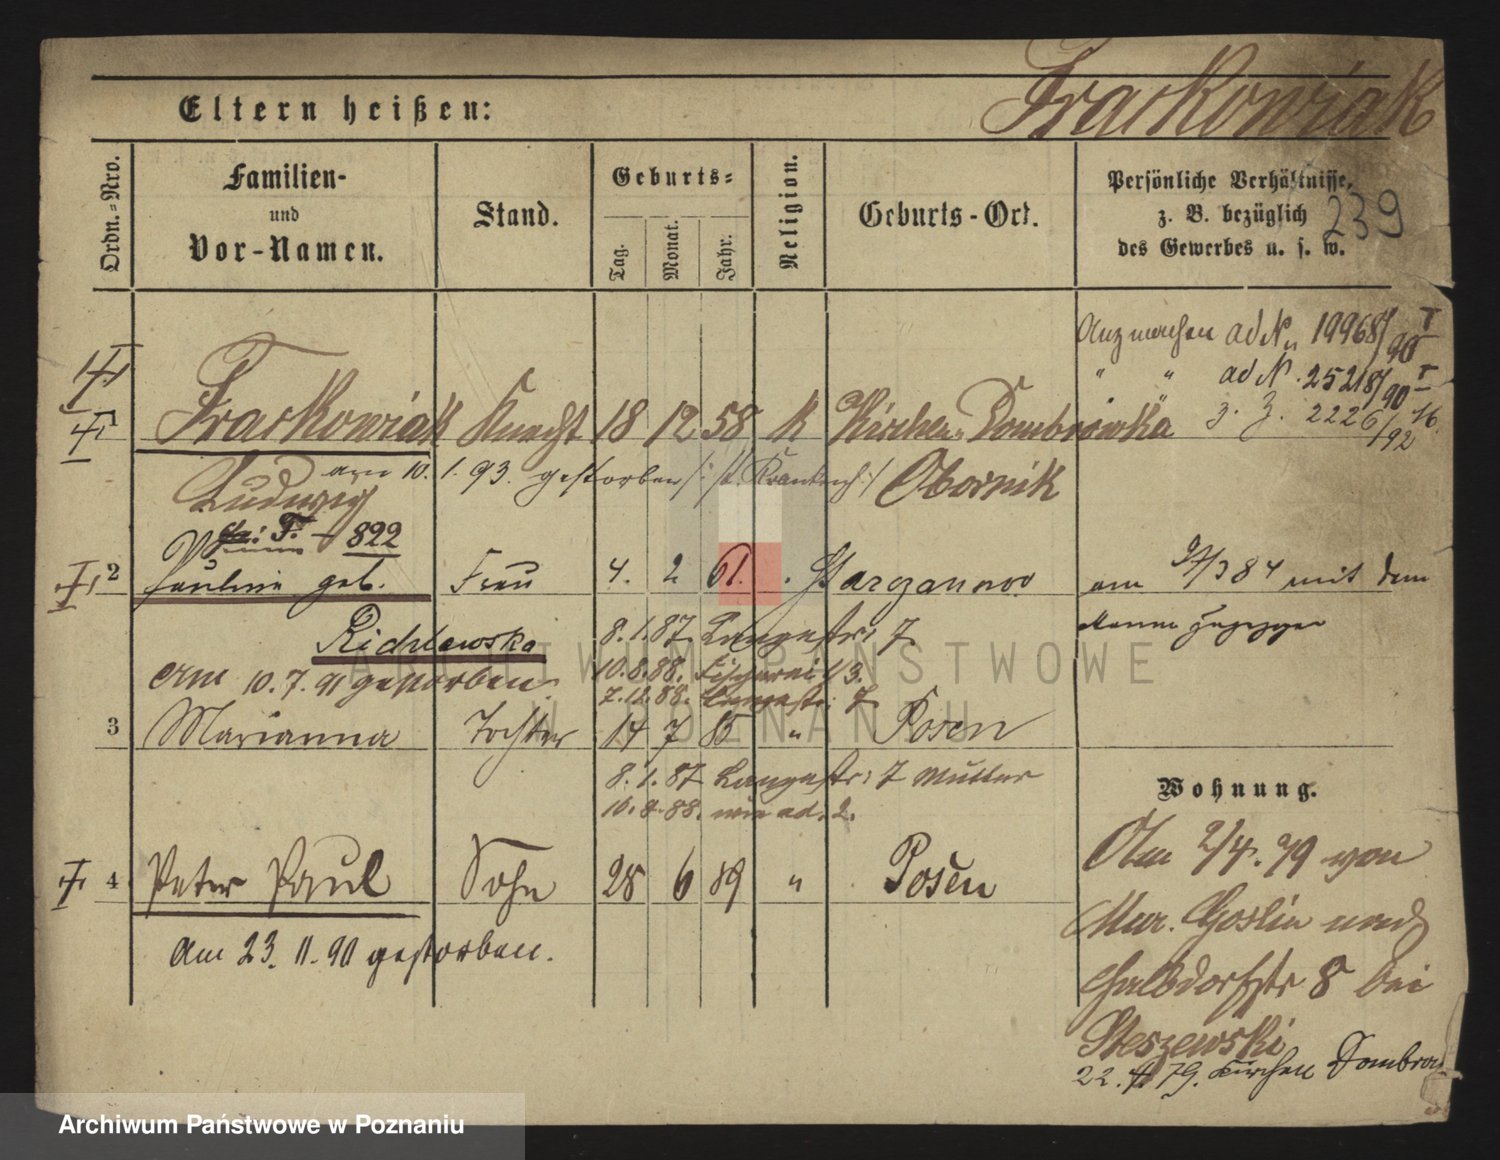 Frackowiak
Eltern heißen:
Ordn.=Nro.
Familien-
und
Vor-Namen.
Stand.
Geburts=
Tag.
Monat.
Jahr.
Religion.
Geburts-Ort.
Persönliche Verhältnisse,
z. B. bezüglich
des Gewerbes u. s. w.
239
ad N 19968/90
" " ad N. 25218/90
z. Z. 2226/92 16.
1 Frackowiak Knecht 18 12 58 K Kirchen Dombrowka
am 10. 1. 93. gestorben /: st. Krankenh :/ Obornik
Ludwig
F. 822
2 Pauline geb. Frau 4. 2 61. Garganowo am 9/3 84 mit dem
Manne zugezogen
Richlewska 8.1.87 Langestr: 7
10.8.88. Fischerei 13.
Am 10.7.91 gestorben. 7.12.88. Langestr. 7
3 Marianna Tochter 14 7 85 " Posen
8.1.87 Langestr: 7 Mutter
10.8.88. wie ad. 2.
Wohnung.
4 Peter Paul Sohn 28 6 89 " Posen
Am 23. 11. 90 gestorben.
Am 2/4. 79 von
Mur. Goslin nach
Halbdorfstr 8 bei
Steszewski
22. 4. 79. Kirchen Dombrow
ARCHIWUM PAŃSTWOWE
W POZNANIU
Archiwum Państwowe w Poznaniu